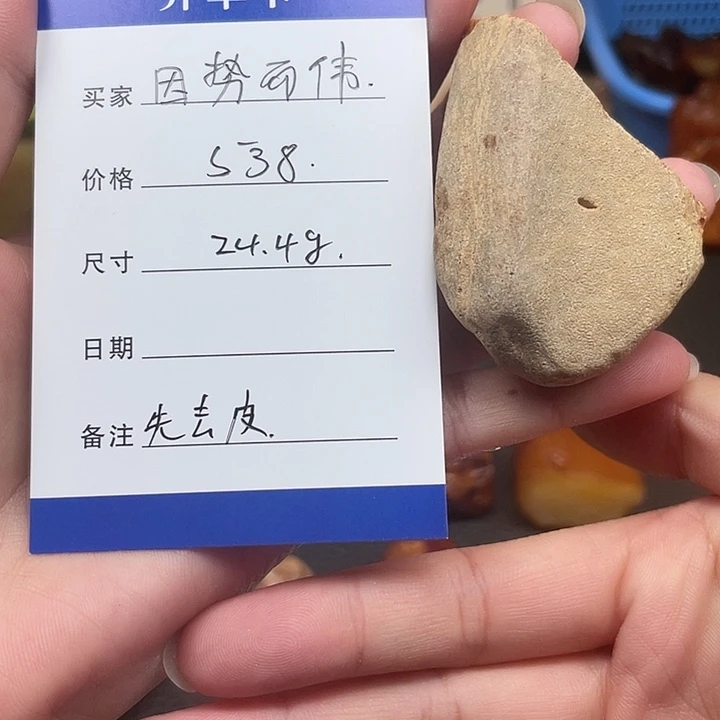 买家 因势而伟.
价格 538.
尺寸 24.4g.
日期
备注 先去皮.